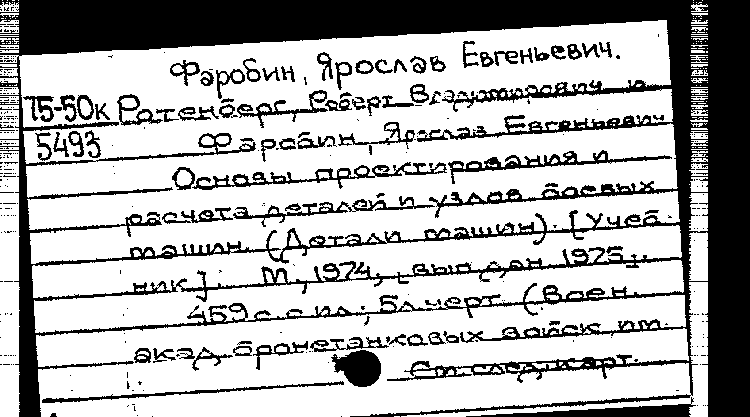 Фаробин, Ярослав Евгеньевич.
75-50к Ротенберг, Роберт Владимирович и
5493 Фаробин, Ярослав Евгеньевич
Основы проектирования и
расчета деталей и узлов боевых
машин. (Детали машин). [Учеб-
ник]. М., 1974, [вып. дан. 1975].
459 с. с ил.; 5 л. черт. (Воен.
акад. бронетанковых войск им.
См. след. карт.